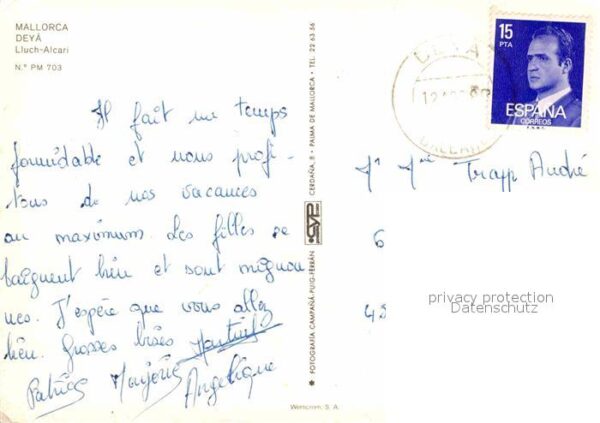 MALLORCA
DEYÁ
Lluch-Alcari
N.° PM 703
Il fait un temps
formidable et nous profi-
tons de nos vacances
au maximum. Les filles se
baignent bien et sont mignon
nes. J'espère que vous allez
bien. Grosses bises
Patrick Marjorie
Angélique
FOTOGRAFÍA CAMPAÑÁ-PUIG-FERRÁN
CERDAÑA, 8 • PALMA DE MALLORCA • TEL. 22 63 56
Werncrom. S. A.
15
PTA
ESPAÑA
CORREOS
DEYA
BALEARES
Mr Mme Trapp André
6
45
privacy protection
Datenschutz